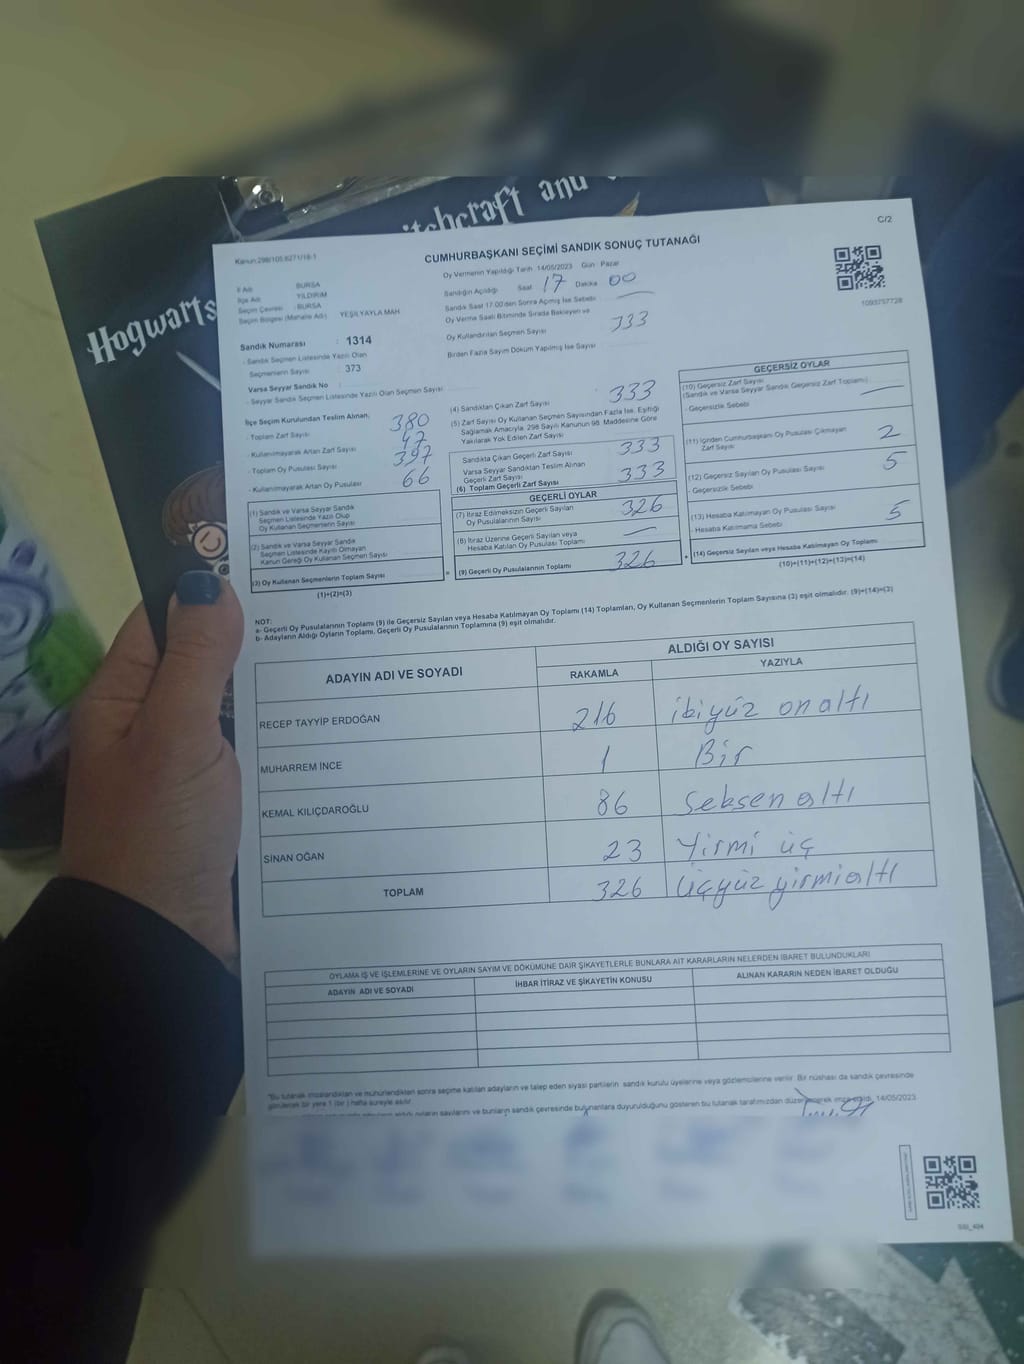 itchcraft and
Hogwarts
C/2
Kanun:298/105.6271/18-1
CUMHURBAŞKANI SEÇİMİ SANDIK SONUÇ TUTANAĞI
Oy Vermenin Yapıldığı Tarih 14/05/2023 Gün : Pazar
1093757728
İl Adı : BURSA
İlçe Adı : YILDIRIM
Seçim Çevresi : BURSA
Seçim Bölgesi (Mahalle Adı) : YEŞİLYAYLA MAH.
Sandık Numarası : 1314
- Sandık Seçmen Listesinde Yazılı Olan
Seçmenlerin Sayısı : 373
Varsa Seyyar Sandık No :
- Seyyar Sandık Seçmen Listesinde Yazılı Olan Seçmen Sayısı
Sandığın Açıldığı Saat 17 Dakika 00
Sandık Saat 17.00'den Sonra Açılmış İse Sebebi
Oy Verme Saati Bitiminde Sırada Bekleyen ve
Oy Kullandırılan Seçmen Sayısı 333
Birden Fazla Sayım Döküm Yapılmış İse Sayısı
İlçe Seçim Kurulundan Teslim Alınan;
- Toplam Zarf Sayısı 380
- Kullanılmayarak Artan Zarf Sayısı 47
- Toplam Oy Pusulası Sayısı 397
- Kullanılmayarak Artan Oy Pusulası 66
(1) Sandık ve Varsa Seyyar Sandık
Seçmen Listesinde Yazılı Olup
Oy Kullanan Seçmenlerin Sayısı
(2) Sandık ve Varsa Seyyar Sandık
Seçmen Listesinde Kayıtlı Olmayan
Kanun Gereği Oy Kullanan Seçmen Sayısı
(3) Oy Kullanan Seçmenlerin Toplam Sayısı
(1)+(2)=(3)
(4) Sandıktan Çıkan Zarf Sayısı : 333
(5) Zarf Sayısı Oy Kullanan Seçmen Sayısından Fazla İse, Eşitliği
Sağlamak Amacıyla, 298 Sayılı Kanunun 98. Maddesine Göre
Yakılarak Yok Edilen Zarf Sayısı
Sandıkta Çıkan Geçerli Zarf Sayısı 333
Varsa Seyyar Sandıktan Teslim Alınan
Geçerli Zarf Sayısı
(6) Toplam Geçerli Zarf Sayısı 333
GEÇERLİ OYLAR
(7) İtiraz Edilmeksizin Geçerli Sayılan
Oy Pusulalarının Sayısı 326
(8) İtiraz Üzerine Geçerli Sayılan veya
Hesaba Katılan Oy Pusulası Toplamı
= (9) Geçerli Oy Pusulalarının Toplamı 326
GEÇERSİZ OYLAR
(10) Geçersiz Zarf Sayısı
(Sandık ve Varsa Seyyar Sandık Geçersiz Zarf Toplamı)
- Geçersizlik Sebebi
(11) İçinden Cumhurbaşkanı Oy Pusulası Çıkmayan
Zarf Sayısı 2
(12) Geçersiz Sayılan Oy Pusulası Sayısı 5
- Geçersizlik Sebebi
(13) Hesaba Katılmayan Oy Pusulası Sayısı 5
- Hesaba Katılmama Sebebi
+ (14) Geçersiz Sayılan veya Hesaba Katılmayan Oy Toplamı
(10)+(11)+(12)+(13)=(14)
NOT:
a- Geçerli Oy Pusulalarının Toplamı (9) ile Geçersiz Sayılan veya Hesaba Katılmayan Oy Toplamı (14) Toplamları, Oy Kullanan Seçmenlerin Toplam Sayısına (3) eşit olmalıdır. (9)+(14)=(3)
b- Adayların Aldığı Oyların Toplamı, Geçerli Oy Pusulalarının Toplamına (9) eşit olmalıdır.
ADAYIN ADI VE SOYADI ALDIĞI OY SAYISI
RAKAMLA YAZIYLA
RECEP TAYYİP ERDOĞAN 216 ikiyüz onaltı
MUHARREM İNCE 1 Bir
KEMAL KILIÇDAROĞLU 86 seksen altı
SİNAN OĞAN 23 Yirmi üç
TOPLAM 326 üçyüz yirmialtı
OYLAMA İŞ VE İŞLEMLERİNE VE OYLARIN SAYIM VE DÖKÜMÜNE DAİR ŞİKAYETLERLE BUNLARA AİT KARARLARIN NELERDEN İBARET BULUNDUKLARI
ADAYIN ADI VE SOYADI İHBAR İTİRAZ VE ŞİKAYETİN KONUSU ALINAN KARARIN NEDEN İBARET OLDUĞU
"Bu tutanak imzalandıktan ve mühürlendikten sonra seçime katılan adayların ve talep eden siyasi partilerin sandık kurulu üyelerine veya gözlemcilerine verilir. Bir nüshası da sandık çevresinde
görülecek bir yere 1 (bir) hafta süreyle asılır.
oyların sayılarını ve bunların sandık çevresinde bulunanlara duyurulduğunu gösteren bu tutanak tarafımızdan düzenlenerek imza edildi. 14/05/2023
SSI_494